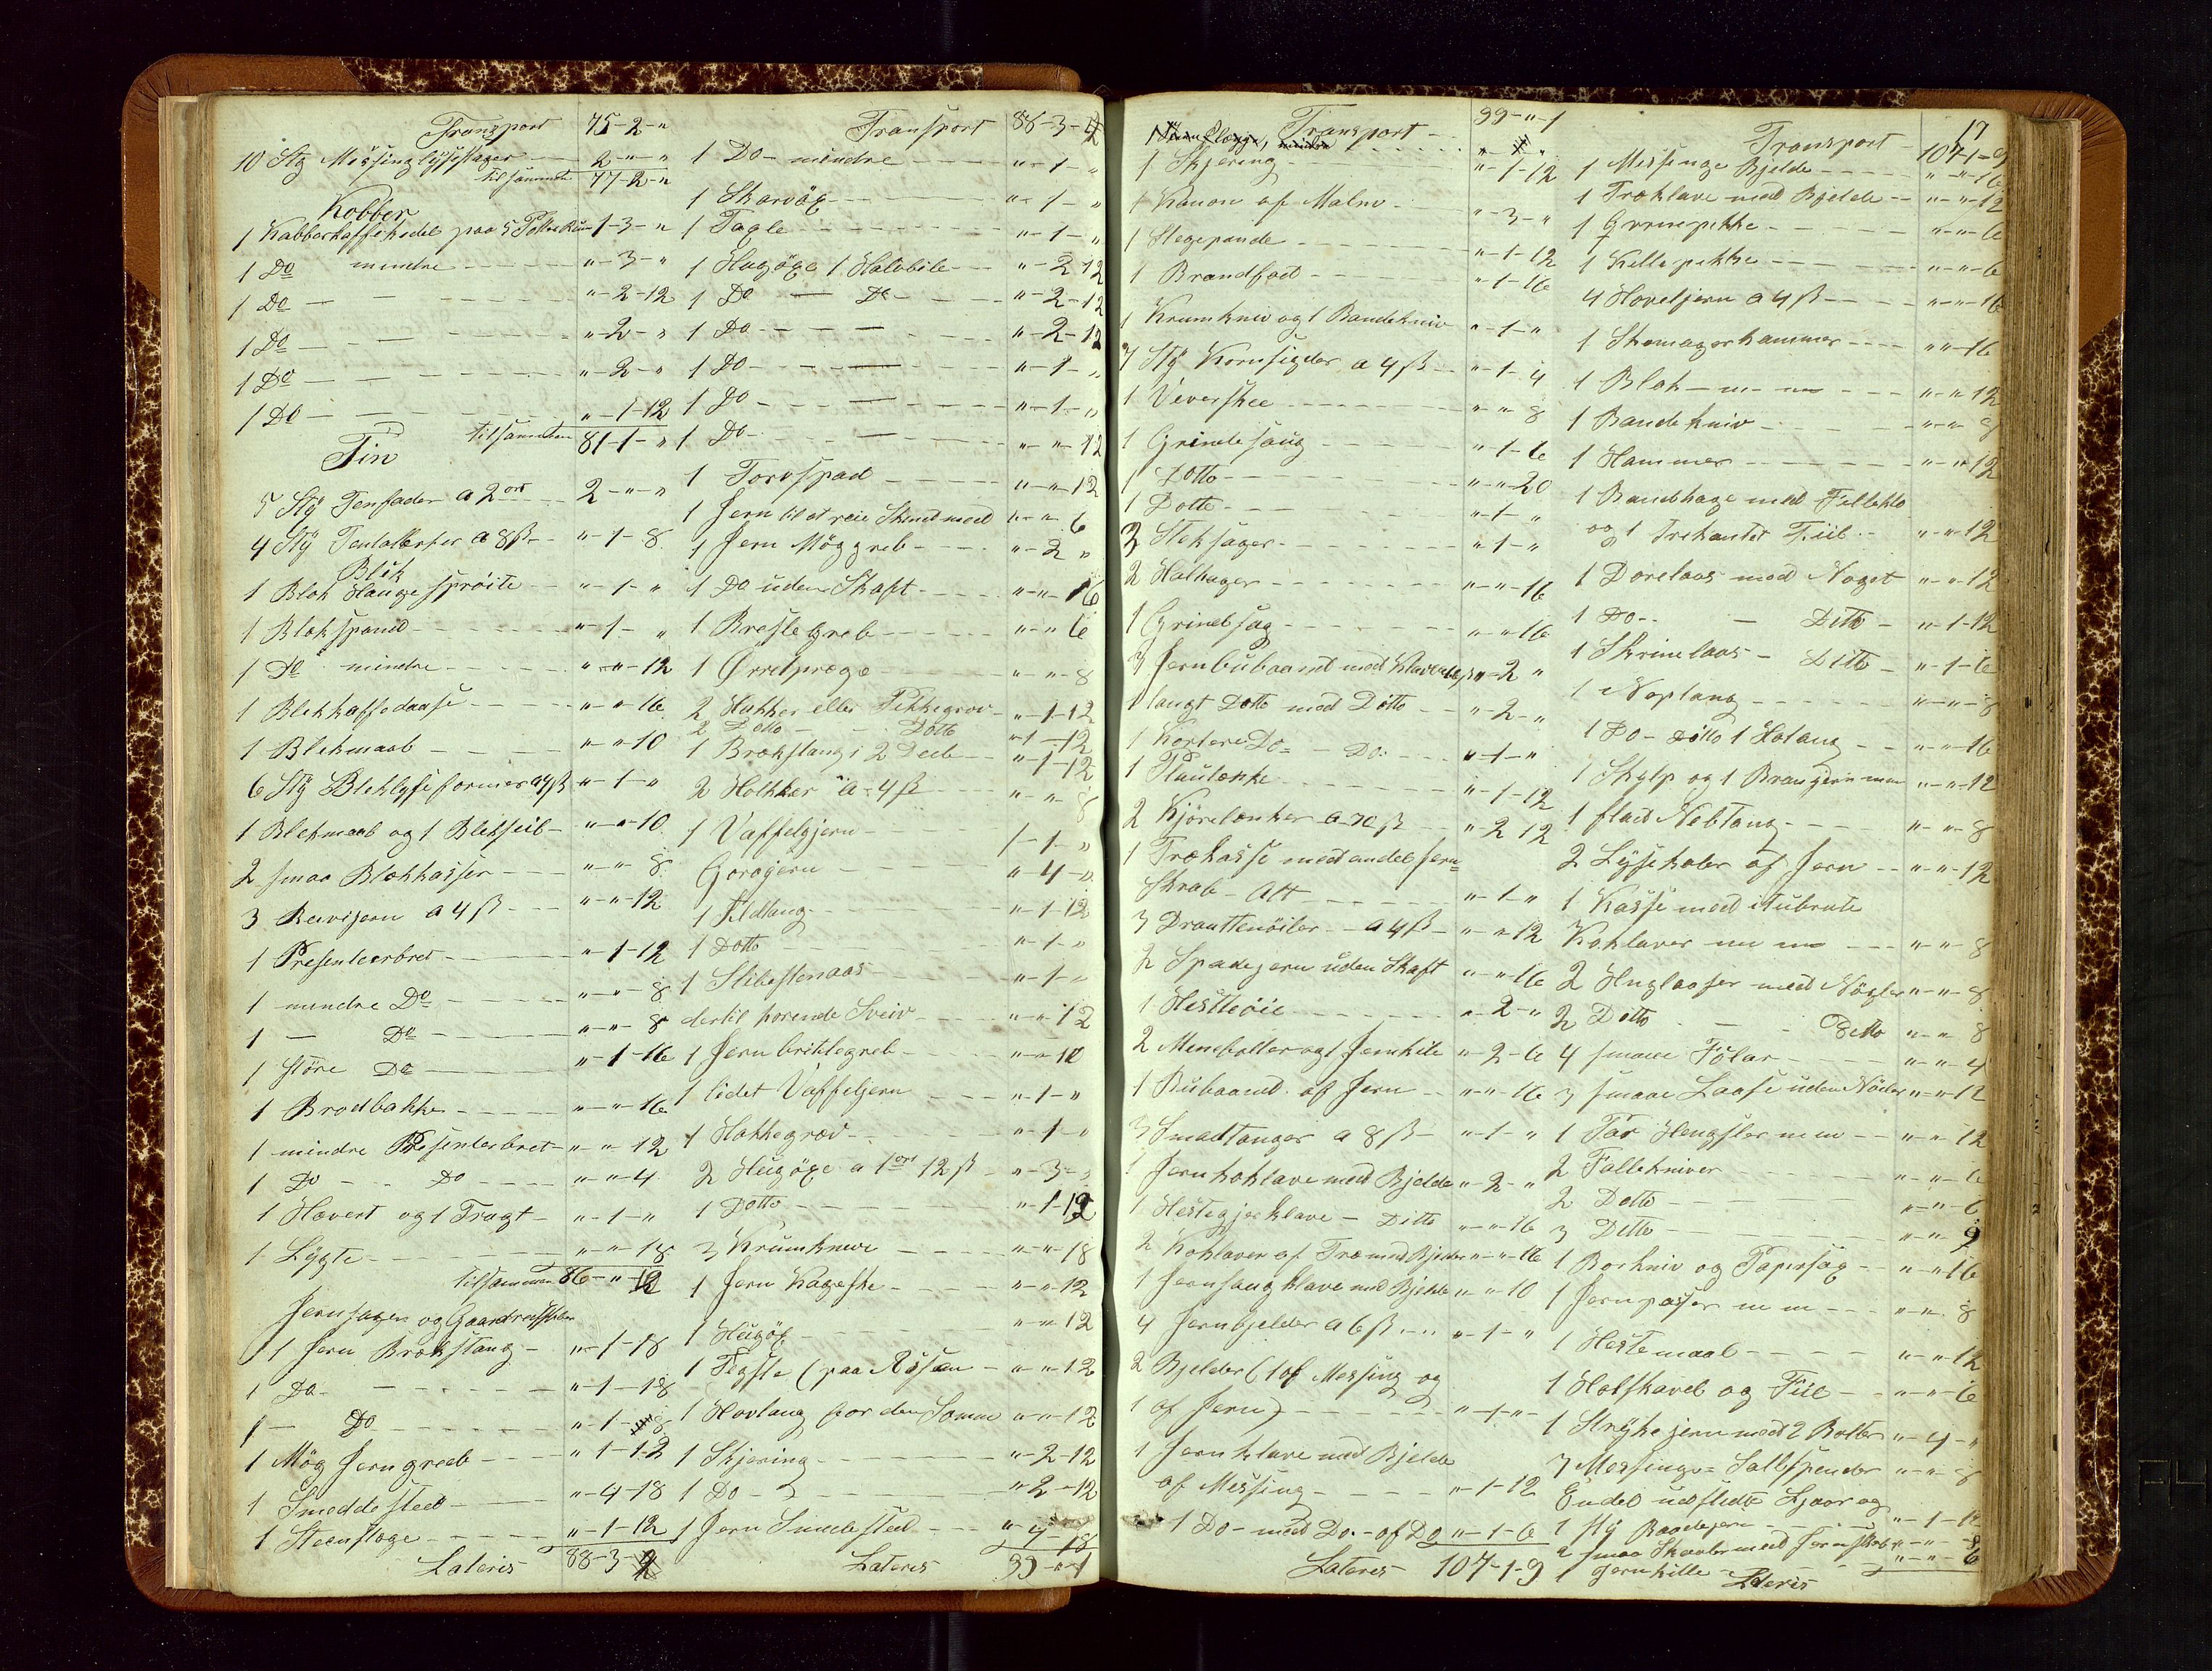 Transport 75-2-"
10 Stÿ Messing lÿsestager 2-"-"
tilsammen 77-2-"
Kobber
1 Kobberkaffekedel paa 5 Potter Rum 1-3-"
1 Do mindre "-3-"
1 Do "-2-12
1 Do "-2-"
1 Do "-2-"
1 Do "-1-12
tilsammen 81-1-"
Tin
5 Stÿ Tenfader a 2 ort 2-"-"
4 Stÿ Tentallerker a 8ß "-1-8
Blik
1 Blek Hauge sprøite "-1-"
1 Blekspand "-1-"
1 Do mindre "-"-12
1 Blekkaffedaase "-"-16
1 Blekmaal "-"-10
6 Stÿ Bleklÿseformer a 4ß "-1-"
1 Blekmaal og 1 Blekseil "-"-10
2 smaa Blekkasser "-"-8
3 Reevijern a 4ß "-"-12
1 Presenteerbret "-1-12
1 mindre Do "-"-8
1 — Do "-"-8
1 støre Do "-1-16
1 Brødbakke "-"-16
1 mindre Presenterbret "-"-12
1 Do Do "-"-4
1 Hævert og 1 Tragt "-1-"
1 Lÿgte "-"-18
tilsammen 86-"-12
Jernsager og Gaardredskaber
1 Jern Brækstang "-1-18
1 Do "-1-18
1 — Do "-1-8
1 Møg Jerngreb "-1-12
1 Smeddested "-4-18
1 Steenslæge "-1-12
Lateris 88-3-2
Transport 88-3-2
1 Do mindre "-1-"
1 Skarøx "-1-"
1 Tagle "-1-"
1 Hugøxe 1 Halvbile "-2-12
1 Do — Do "-2-12
1 Do — "-2-12
1 Do — "-1-"
1 Do — "-1-"
1 Do — "-"-12
1 Torvspad "-"-12
1 Jern til at reie Skind med "-"-6
1 Jern Møggreb "-2-"
1 Do uden Skaft "-"-16
1 Brestegreb "-"-6
1 Ørretpræge "-"-8
2 Hakker eller Pikkegrev "-1-12
2 Ditto Ditto "-1-12
1 Brækstang i 2 Deele "-1-12
2 Holkker a 4ß "-"-8
1 Vaffeljern 1-1-"
Gorojern "-4-"
1 Ildtang "-1-12
1 Ditto "-1-"
1 Slibestenaas "-1-"
dertil hørende Sveiv "-"-12
1 Jern brikkegreb "-"-10
1 lidet Vaffeljern "-1-"
1 Hakkegrev "-1-"
2 Hugøxe a 1 ort 12ß "-3-"
1 Ditto "-1-12
3 Krumknive "-"-18
1 Jern Kageske "-"-12
1 Hugøx "-"-12
1 Tegste (paa Aasen "-"-12
1 Hovtang for den Somme "-"-12
1 Skjering "-2-12
1 Do "-2-12
1 Jern Smedested "-4-18
Lateris 99-"-1
Transport 99-"-1
1 Skjering "-1-12
1 Kanon af Malm "-3-"
1 Stegepande "-1-12
1 Brandfad "-1-16
1 Krumkniv og 1 Bandekniv "-1-"
7 Stÿ Kornsigder a 4ß "-1-4
1 Væverskee "-"-8
1 Grindesaug "-1-6
1 Ditto "-"-20
1 Ditto "-1-"
3 Stiksager "-1-"
2 Halhager "-"-16
1 Grindsag "-"-16
3 Jernbubaand med "-2-"
1 langt Ditto med Ditto "-2-"
1 Kortere Do — Do "-1-"
1 Plaulænke "-1-12
2 Kjørelænker a 30ß "-2-12
1 Trækasse med andel Jern
Skrab Alt "-1-"
3 Drauttenøiler a 4ß "-"-12
2 Spadejern uden Skaft "-"-16
1 Hestteøie "-2-"
2 Minebolter og 1 Jernkile "-2-6
1 Bubaand af Jern "-"-16
3 Smaatanger a 8ß "-1-"
1 Jernkoklave med Bjelde "-2-"
1 Hestegjerklave — Ditto "-"-16
2 Koklaver af Træ med Bjelder "-"-16
1 Jernsaugklave med Bjelde "-"-10
4 Jernbjelder a 6ß "-1-"
2 Bjelder (1 af Messing og
1 af Jern) "-1-"
1 Jernklave med Bjelde
af Messing "-1-12
1 Do med Do af Do "-1-6
Lateris 107-1-9
17
Transport 107-1-9
1 Messinge Bjelde "-"-16
1 Træklave med Bjelde "-"-12
1 Grovepikke "-"-6
1 Kellepikke "-"-6
4 Høveljern a 4ß "-"-16
1 Skomagerhammer "-"-16
1 Blok "-"-12
1 Bandekniv "-"-8
1 Hammer "-"-12
1 Bandhage med Filleklo
og 1 trekantet Fiil "-"-12
1 Dørelaas med Nøgel "-"-12
1 Do — Ditto "-1-12
1 Skrinelaas — Ditto "-1-6
1 Naptang "-"-8
1 Do Ditto 1 Holtang "-"-16
1 Skÿlp og 1 Branjern "-"-12
1 flad Nebtang "-"-8
2 Lÿsekoler af Jern "-"-12
1 Kasse med itubrute
Koklaver "-"-8
2 Huglaaser med Nøgler "-"-8
2 Ditto — Ditto "-"-8
4 smaae Følar "-"-4
3 smaae Laase uden Nøkler "-"-12
1 Par Hengsler "-"-12
2 Follekniver "-"-6
2 Ditto "-"-6
3 Ditto "-"-9
1 Borkniv og Tapersag "-"-16
1 Jernpasser "-"-8
1 Hestemaal "-"-12
1 Holskavel og Fiil "-"-6
1 Strÿke jern med 2 Bolter "-4-"
3 Messings Salespender "-"-8
Endel udslidte Ljaar og
1 Stÿ Baadejern "-1-12
2 smaa Skavler med Jernskoe "-"-8
1 Jernkille "-"-6
Lateris